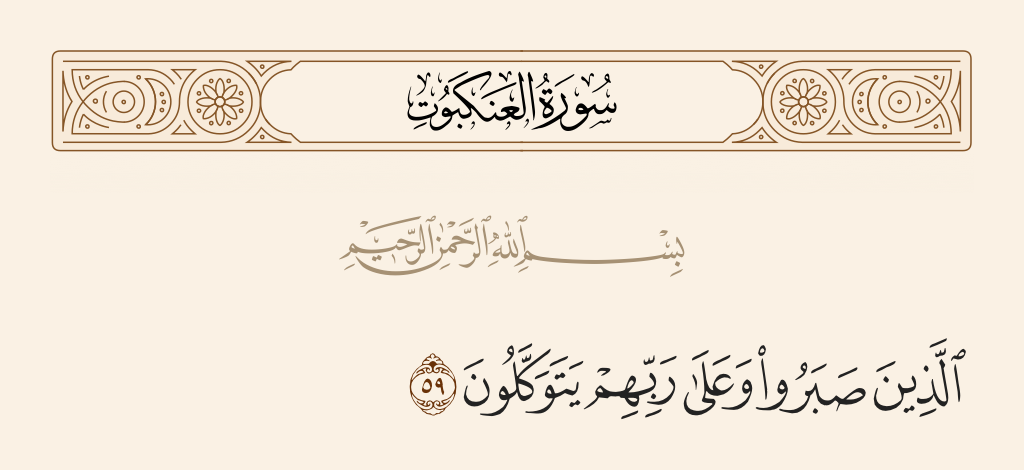 سُورَةُ العَنكَبُوتِ
بِسْمِ ٱللَّهِ ٱلرَّحْمَٰنِ ٱلرَّحِيمِ
ٱلَّذِينَ صَبَرُوا۟ وَعَلَىٰ رَبِّهِمْ يَتَوَكَّلُونَ ٥٩